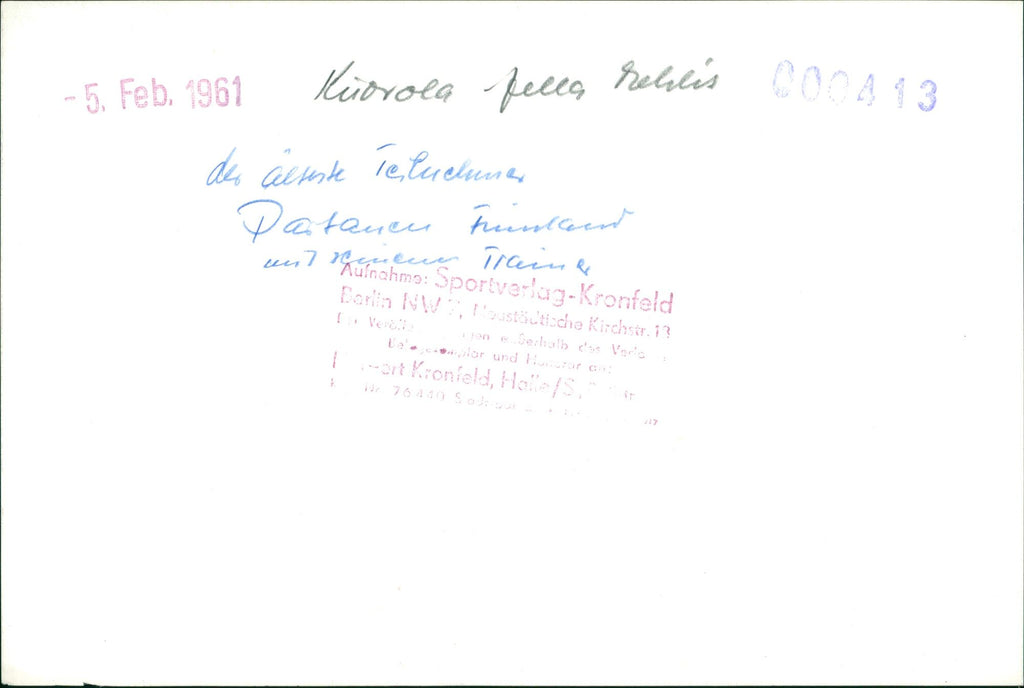 - 5. Feb. 1961 Kuorola Zella Mehlis 000413
der älteste Teilnehmer
Partanen Finnland
mit seinem Trainer
Aufnahme: Sportverlag-Kronfeld
Berlin NW 7, Neustädtische Kirchstr. 13
außerhalb des
Belegexemplar und Honorar an:
Kronfeld, Halle/S.
76440